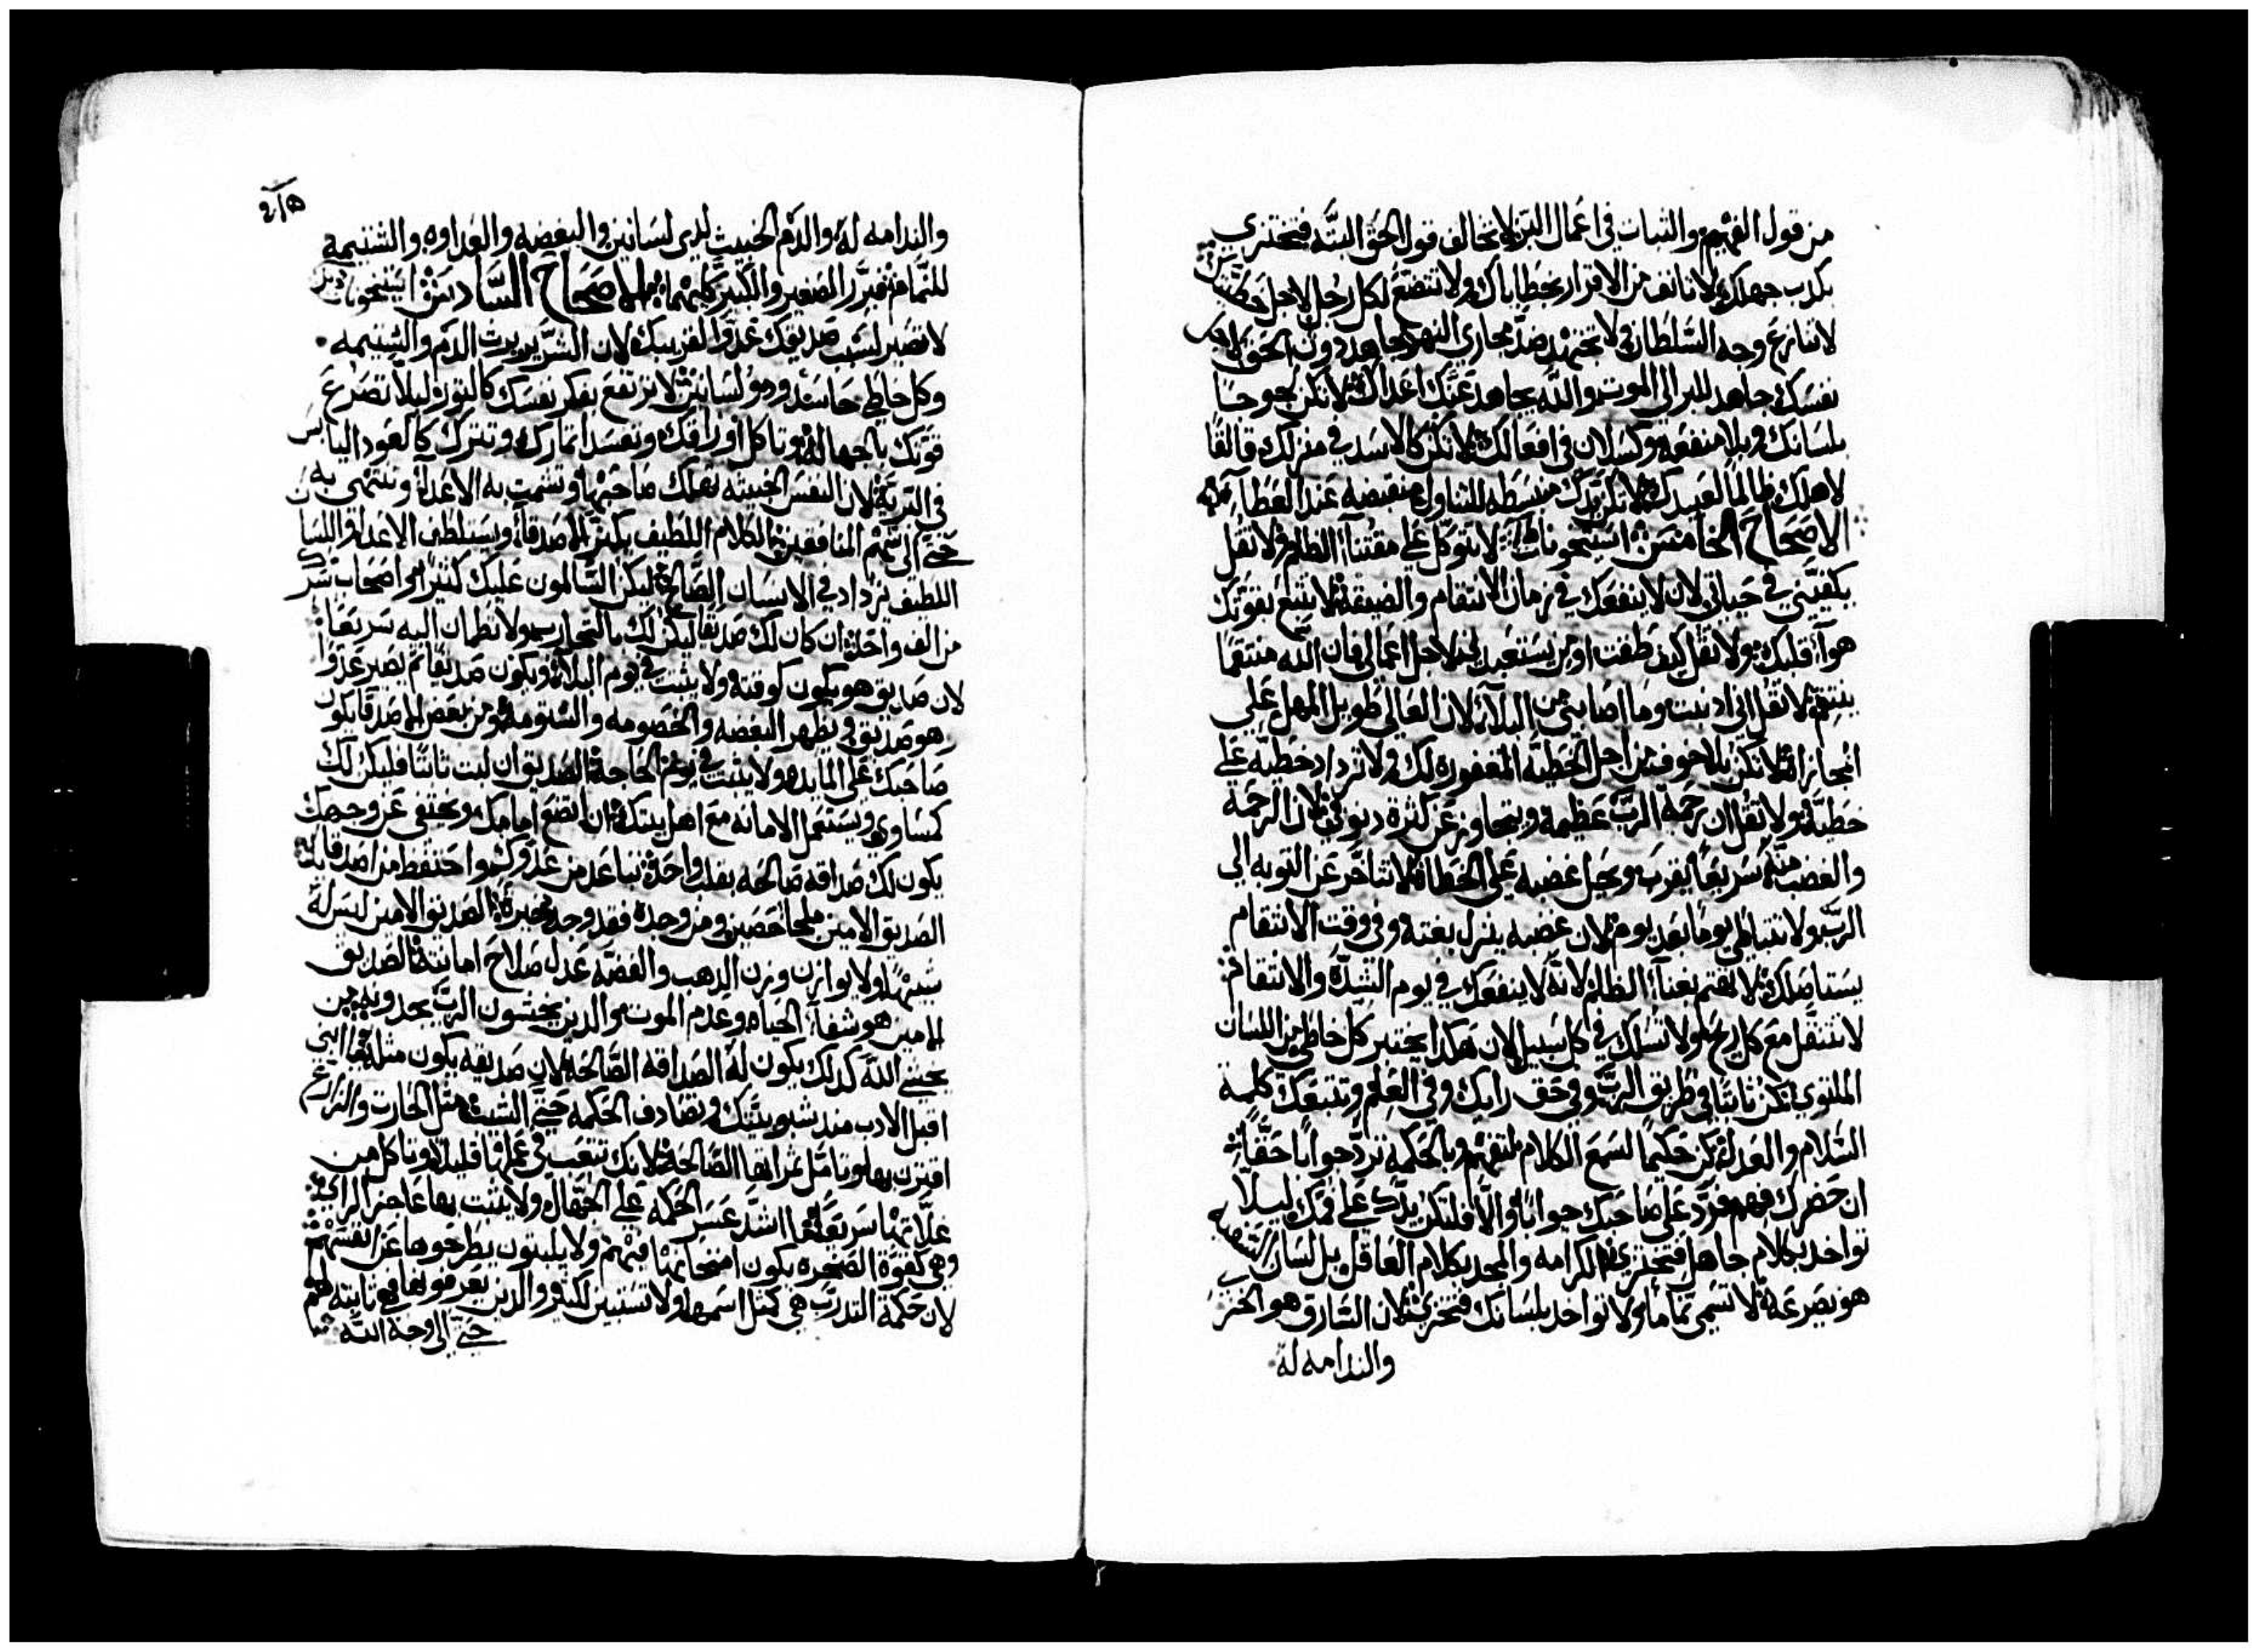 من قول الفهيم والثبات في اعمال البر لا تخالف قول الحق البتّه فتختزي
بكدب جهلك لا تانف من الاقرار بخطاياك ولا تتضع لكل رجل لاجل خطيتك
لا تنازع وجه السّلطان ولا تجتهد ضدّ مجاري النهر جاهد دون الحق لاجل
نفسك جاهد للبر الي الموت والله يجاهد عنك اعداك لا تكن لجوجًا
بلسانك وبلا منفعه وكسلان في افعالك لا تكن كالاسد في منزلك قالقًا
لاهلك ظالمًا لعبيدك لا تكن يدك منبسطه للتناول منقبضه عند العطا
الاصحاح الخامس استيخونات لا تتوكل علي مقتنا الظلم ولا تقل
يكفيني في حياتي لان لا ينفعك في زمان الانتقام والضيقه لا تتبع بقوتك
هوا قلبك ولا تقل كيف طقت او من يستعبدني لاجل اعمالي فان الله منتقمًا
ينتقم لا تقل اني ادنبت وما اصابني من البلاء لان العالي طويل المهل علي
المجازاه لا تكن بلا خوف من اجل الخطيّه المغفوره لك ولا تزداد خطيّه علي
خطيّه ولا تقل ان رحمة الربّ عظيمه ويتجاوز عن كثرة دنوبي لان الرحمه
والغضب منه سريعًا يقرب ويحل غضبه علي الخطاه لا تتاخّر عن التوبه الي
الربّ ولا تتباطي يومًا بعد يوم لان غضبه ينزل بغته وفي وقت الانتقام
يستاصلك لا تهتم بغناء الظلم لانه لا ينفعك في يوم الشدّه والانتقام
لا تتنقل مع كل ريح ولا تسلك في كل سبيل لان هكدا يختبر كل خاطي من اللسان
الملتوي كن ثابتًا في طريق الربّ وفي حق رايك وفي العلم وتتبعك كلمة
السّلام والعدل كن حكيمًا لسمع الكلام لتفهم وبالحكمه تردّ جوابًا حقًّا
ان حضرك فهم فردّ علي صاحبك جوابًا والّا فلتكن يدك علي فمك ليلّا
تواخد بكلام جاهل فتختزي الكرامه والمجد بكلام العاقل بل لسان السّفيه
هو يصرعه لا تسمّي نمّامًا ولا تواخد بلسانك فتخزي لان السّارق هو الخزي
والندامه له
والندامه له والدم الخبيث لدي لسانين والبغضه والعداوه والشتيمة
للنمّام فبرّر الصغير والكبير كليهما الاصحاح السّادس استيخونات
لا تصير لسبب صديقك عدوًا لقريبك لان الشّرير يرث الدم والشتيمه
وكل خاطي حاسد ودو لسانين لا ترتفع بفكر نفسك كالثور ليلّا تصرع
قوتك بالجهاله وتاكل اوراقك وتفسد اتمارك وتترك كالعود اليابس
في التربة لان النفس الخبيثه تهلك صاحبها وتشمت به الاعداء وتنتهي به
حتي الي سهم المنافقين الكلام اللطيف يكتر الاصدقاء ويستلطف الاعداء واللسان
اللطيف يزداد في الانسان الصّالح ليكن السّالمون عليك كثيرًا واصحاب سرّك
من الف واحد ان كان لك صديقًا ليكن لك بالتجارب ولا تطمان اليه سريعًا
لان صديق هو يكون كوقته ولا يثبت في يوم البلاء ويكون صديقًا تم يصير عدوًا
وهو صديق يظهر البغضه والخصومه والشتومه ومن بعض الاصدقا يكون
صاحبك علي المايده ولا يثبت في يوم الحاجة الصديق ان لبت تابتًا فليكن لك
كمساوي ويستعمل الامانه مع اهل بيتك ان اتضع امامك ويختفي عن وجهك
يكون لك صداقه صالحه بقلب واحد تباعد من عدوك واحتفظ من اصدقايك
الصديق الامين ملجا حصين ومن وجده فقد وجد دخيرة الصديق الامين ليس له
شبيهًا ولا يوازن وزن الدهب والفضّه عدل صلاح امانته الصديق
الامين هو شفاء الحياه وعدم الموت والدين يخشون الربّ يجدونه من
يخشي الله كدلك يكون له الصداقه الصّالحه لان صديقه يكون مثله يا ابني
اقبل الادب مند شبوبيتك وتصادف الحكمه حتي الشيب مثل الحارت والزارع
اقترب بها وتامّل ثمراتها الصّالحه لانك تتعب في عملها قليلًا وتاكل من
غلّاتها سريعًا ما اشدّ عسر الحكمه علي الجهّال ولا يثبت بها عاجز الراي
وهي كقوة الصخره يكون امتحانها فيهم ولا يلبتون يطرحوها عن انفسهم
لان حكمة التدرّب هي كمثل اسمها ولا تستبين لكثير والدين يعرفونها هي ثابته لهم
حتي الي وجه الله